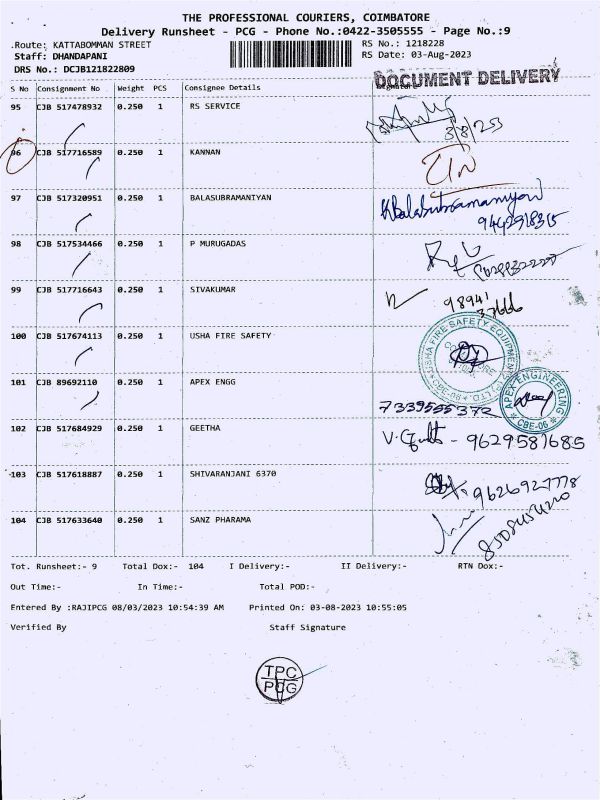 THE PROFESSIONAL COURIERS, COIMBATORE
Delivery Runsheet - PCG - Phone No.:0422-3505555 - Page No.:9
Route: KATTABOMMAN STREET RS No.: 1218228
Staff: DHANDAPANI RS Date: 03-Aug-2023
DRS No.: DCJB121822809
DOCUMENT DELIVERY
S No Consignment No Weight PCS Consignee Details Signature
95 CJB 517478932 0.250 1 RS SERVICE
3/8/23
96 CJB 517716589 0.250 1 KANNAN
97 CJB 517320951 0.250 1 BALASUBRAMANIYAN KBalasubramaniyan
9442918315
98 CJB 517534466 0.250 1 P MURUGADAS
99 CJB 517716643 0.250 1 SIVAKUMAR 98941
37666
100 CJB 517674113 0.250 1 USHA FIRE SAFETY
USHA FIRE SAFETY EQUIPMENTS (P) LTD. CBE-06
COIMBATORE
101 CJB 89692110 0.250 1 APEX ENGG
APEX ENGINEERING CBE-06
7339555372
102 CJB 517684929 0.250 1 GEETHA V. - 9629581685
103 CJB 517618887 0.250 1 SHIVARANJANI 6370 9626927778
104 CJB 517633640 0.250 1 SANZ PHARAMA
Tot. Runsheet:- 9 Total Dox:- 104 I Delivery:- II Delivery:- RTN Dox:-
Out Time:- In Time:- Total POD:-
Entered By :RAJIPCG 08/03/2023 10:54:39 AM Printed On: 03-08-2023 10:55:05
Verified By Staff Signature
TPC
PCG